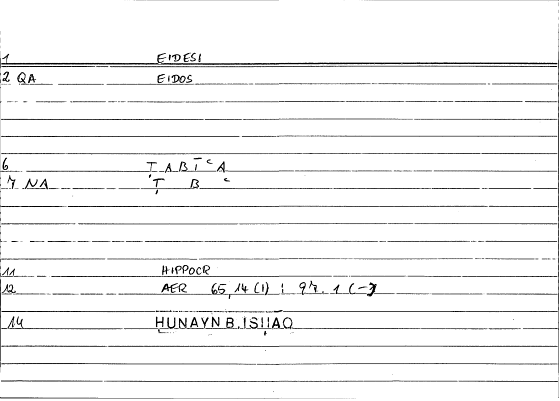 1 EIDESI
2 QA EIDOS
6 ṬABĪʿA
7 NA Ṭ B ʿ
11 HIPPOCR
12 AER 65,14 (1) ; 97.1 (-)
14 ḤUNAYN B. ISḤĀQ